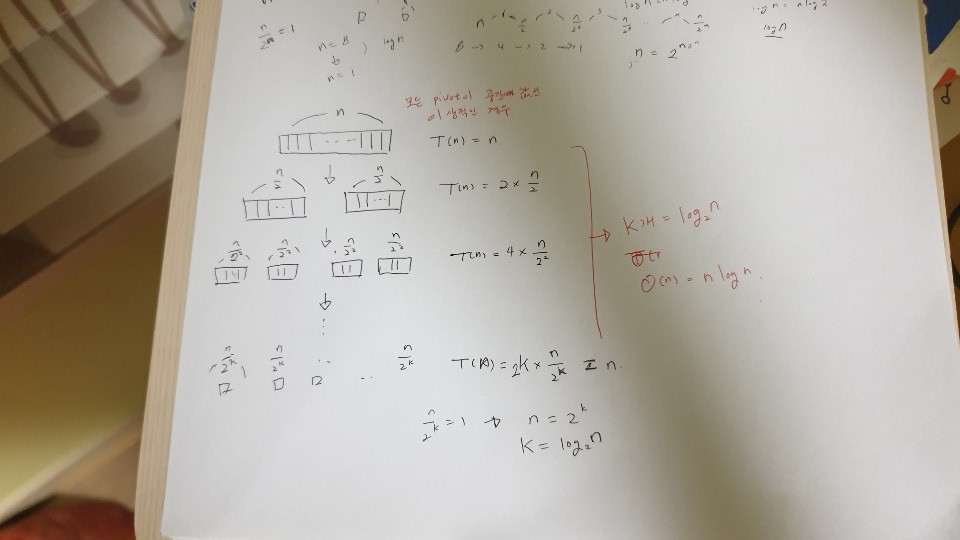 n/2ⁿ = 1
n = 8 , log n
n = 1
n n/2 n/2² n/2³ .. n/2ⁿ
8 → 4 → 2 → 1
log n
모든 pivot이 중간값
이상적인 경우
n
T(n) = n
n/2 n/2
T(n) = 2 × n/2
n/2² n/2² n/2² n/2²
T(n) = 4 × n/2²
K개 = log₂n
O(n) = n log n.
n/2ᵏ n/2ᵏ .. n/2ᵏ
T(n) = 2k × n/2ᵏ = n.
n/2ᵏ = 1 → n = 2ᵏ
K = log₂n